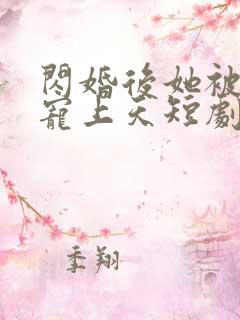 閃婚後她被
寵上天短劇
季翔